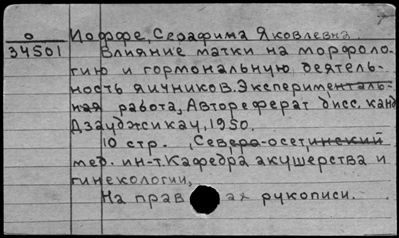 О Иоффе, Серафима Яковлевна.
34501 Влияние матки на морфоло-
гию и гормональную деятель-
ность яичников. Эксперименталь-
ная работа, Автореферат дисс. канд
Дзауджикау, 1950.
10 стр., (Северо-осетинский
мед. ин-т. Кафедра акушерства и
гинекологии,
На прав ах рукописи.